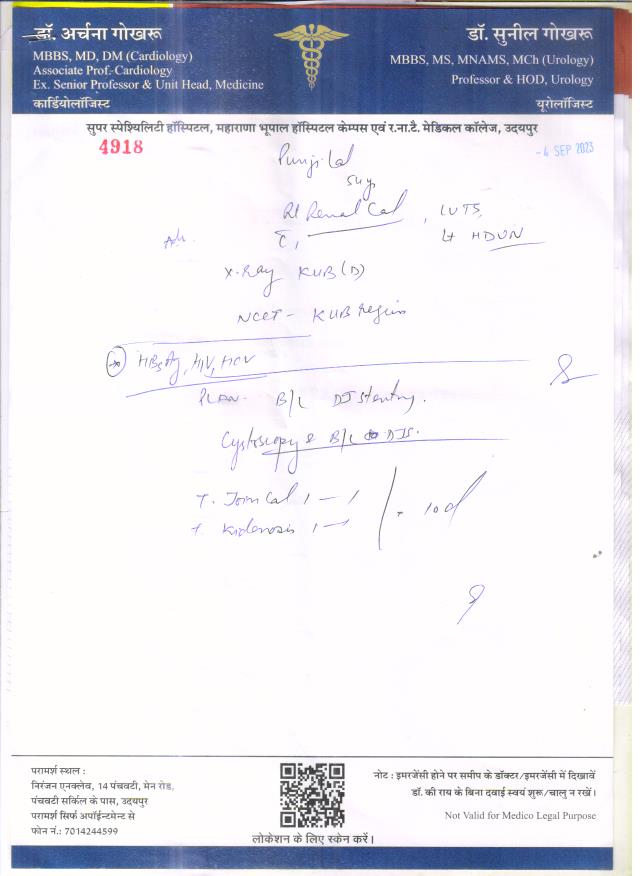 डॉ. अर्चना गोखरू
MBBS, MD, DM (Cardiology)
Associate Prof.-Cardiology
Ex. Senior Professor & Unit Head, Medicine
कार्डियोलॉजिस्ट
डॉ. सुनील गोखरू
MBBS, MS, MNAMS, MCh (Urology)
Professor & HOD, Urology
यूरोलॉजिस्ट
सुपर स्पेशियिलिटी हॉस्पिटल, महाराणा भूपाल हॉस्पिटल कैम्पस एवं र.ना.टै. मेडिकल कॉलेज, उदयपुर
4918
-4 SEP 2023
Punji Lal
54y
Rt Renal Cal, LUTS,
Lt HDUN
Adv.
X-Ray KUB (D)
NCCT - KUB Region
HBsAg, HIV, HCV
PLAN - B/L DJ stenting.
Cystoscopy & B/L DJS.
1 - 1
1 - 1
10d
परामर्श स्थल :
निरंजन एनक्लेव, 14 पंचवटी, मेन रोड,
पंचवटी सर्किल के पास, उदयपुर
परामर्श सिर्फ अपॉईन्टमेन्ट से
फोन नं.: 7014244599
लोकेशन के लिए स्केन करें।
नोट : इमरजेंसी होने पर समीप के डॉक्टर/इमरजेंसी में दिखावें
डॉ. की राय के बिना दवाई स्वयं शुरू/चालु न रखें।
Not Valid for Medico Legal Purpose